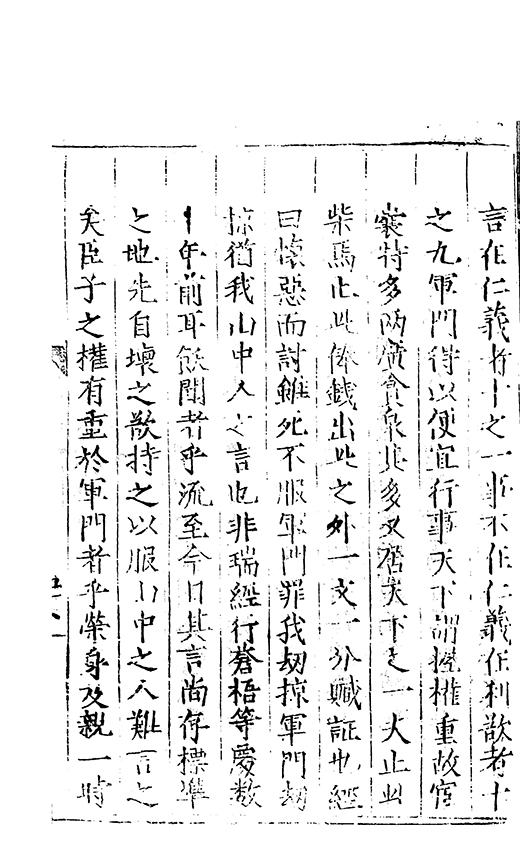 言任仁義者十之一事不任仁義任利欲者十
之九軍門得以便宜行事天下謂握權重故宦
囊特多兩廣貪泉此多又居天下之一大止此
柴馬止此俸錢出此之外一文一分贓証也經
曰懷惡而討雖死不服軍門罪我刼掠軍門刼
掠猶我山中人之言也非瑞經行蒼梧等處数
十年前耳飫聞者乎流至今日其言尚存標準
之地先自壞之欲持之以服山中之人難言之
矣臣子之權有重於軍門者乎榮身及親一時